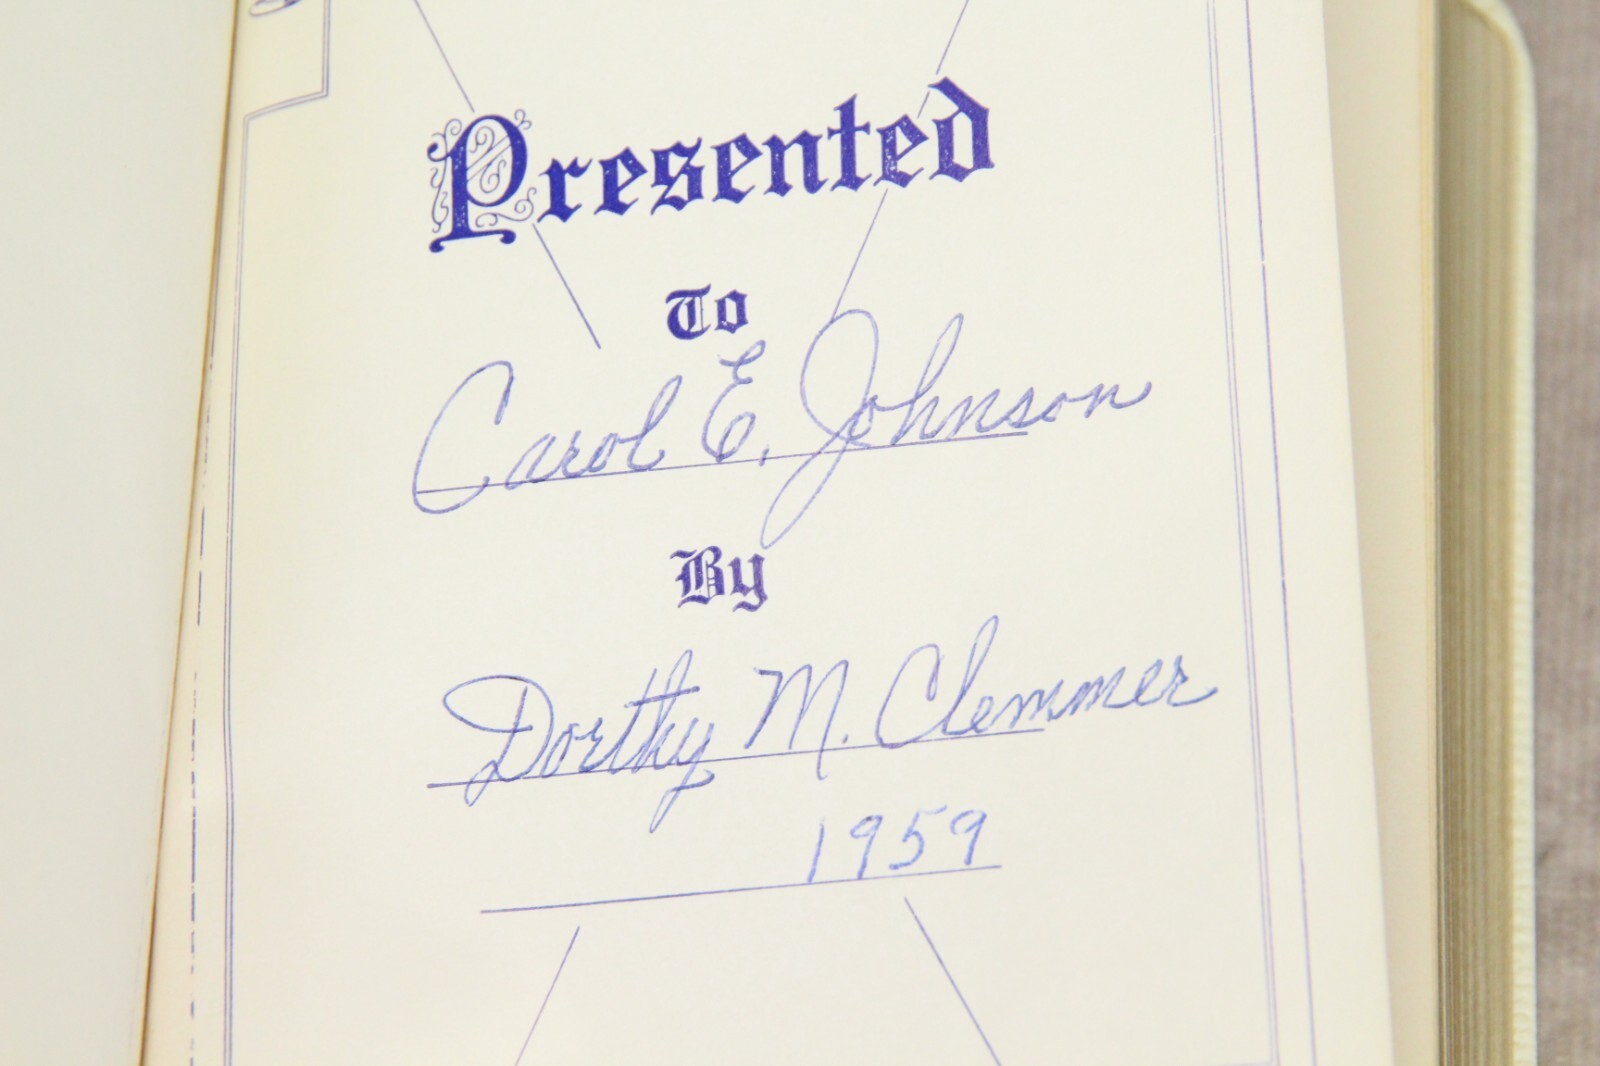 Presented
To
Carol E. Johnson
By
Dorthy M. Clemmer
1959